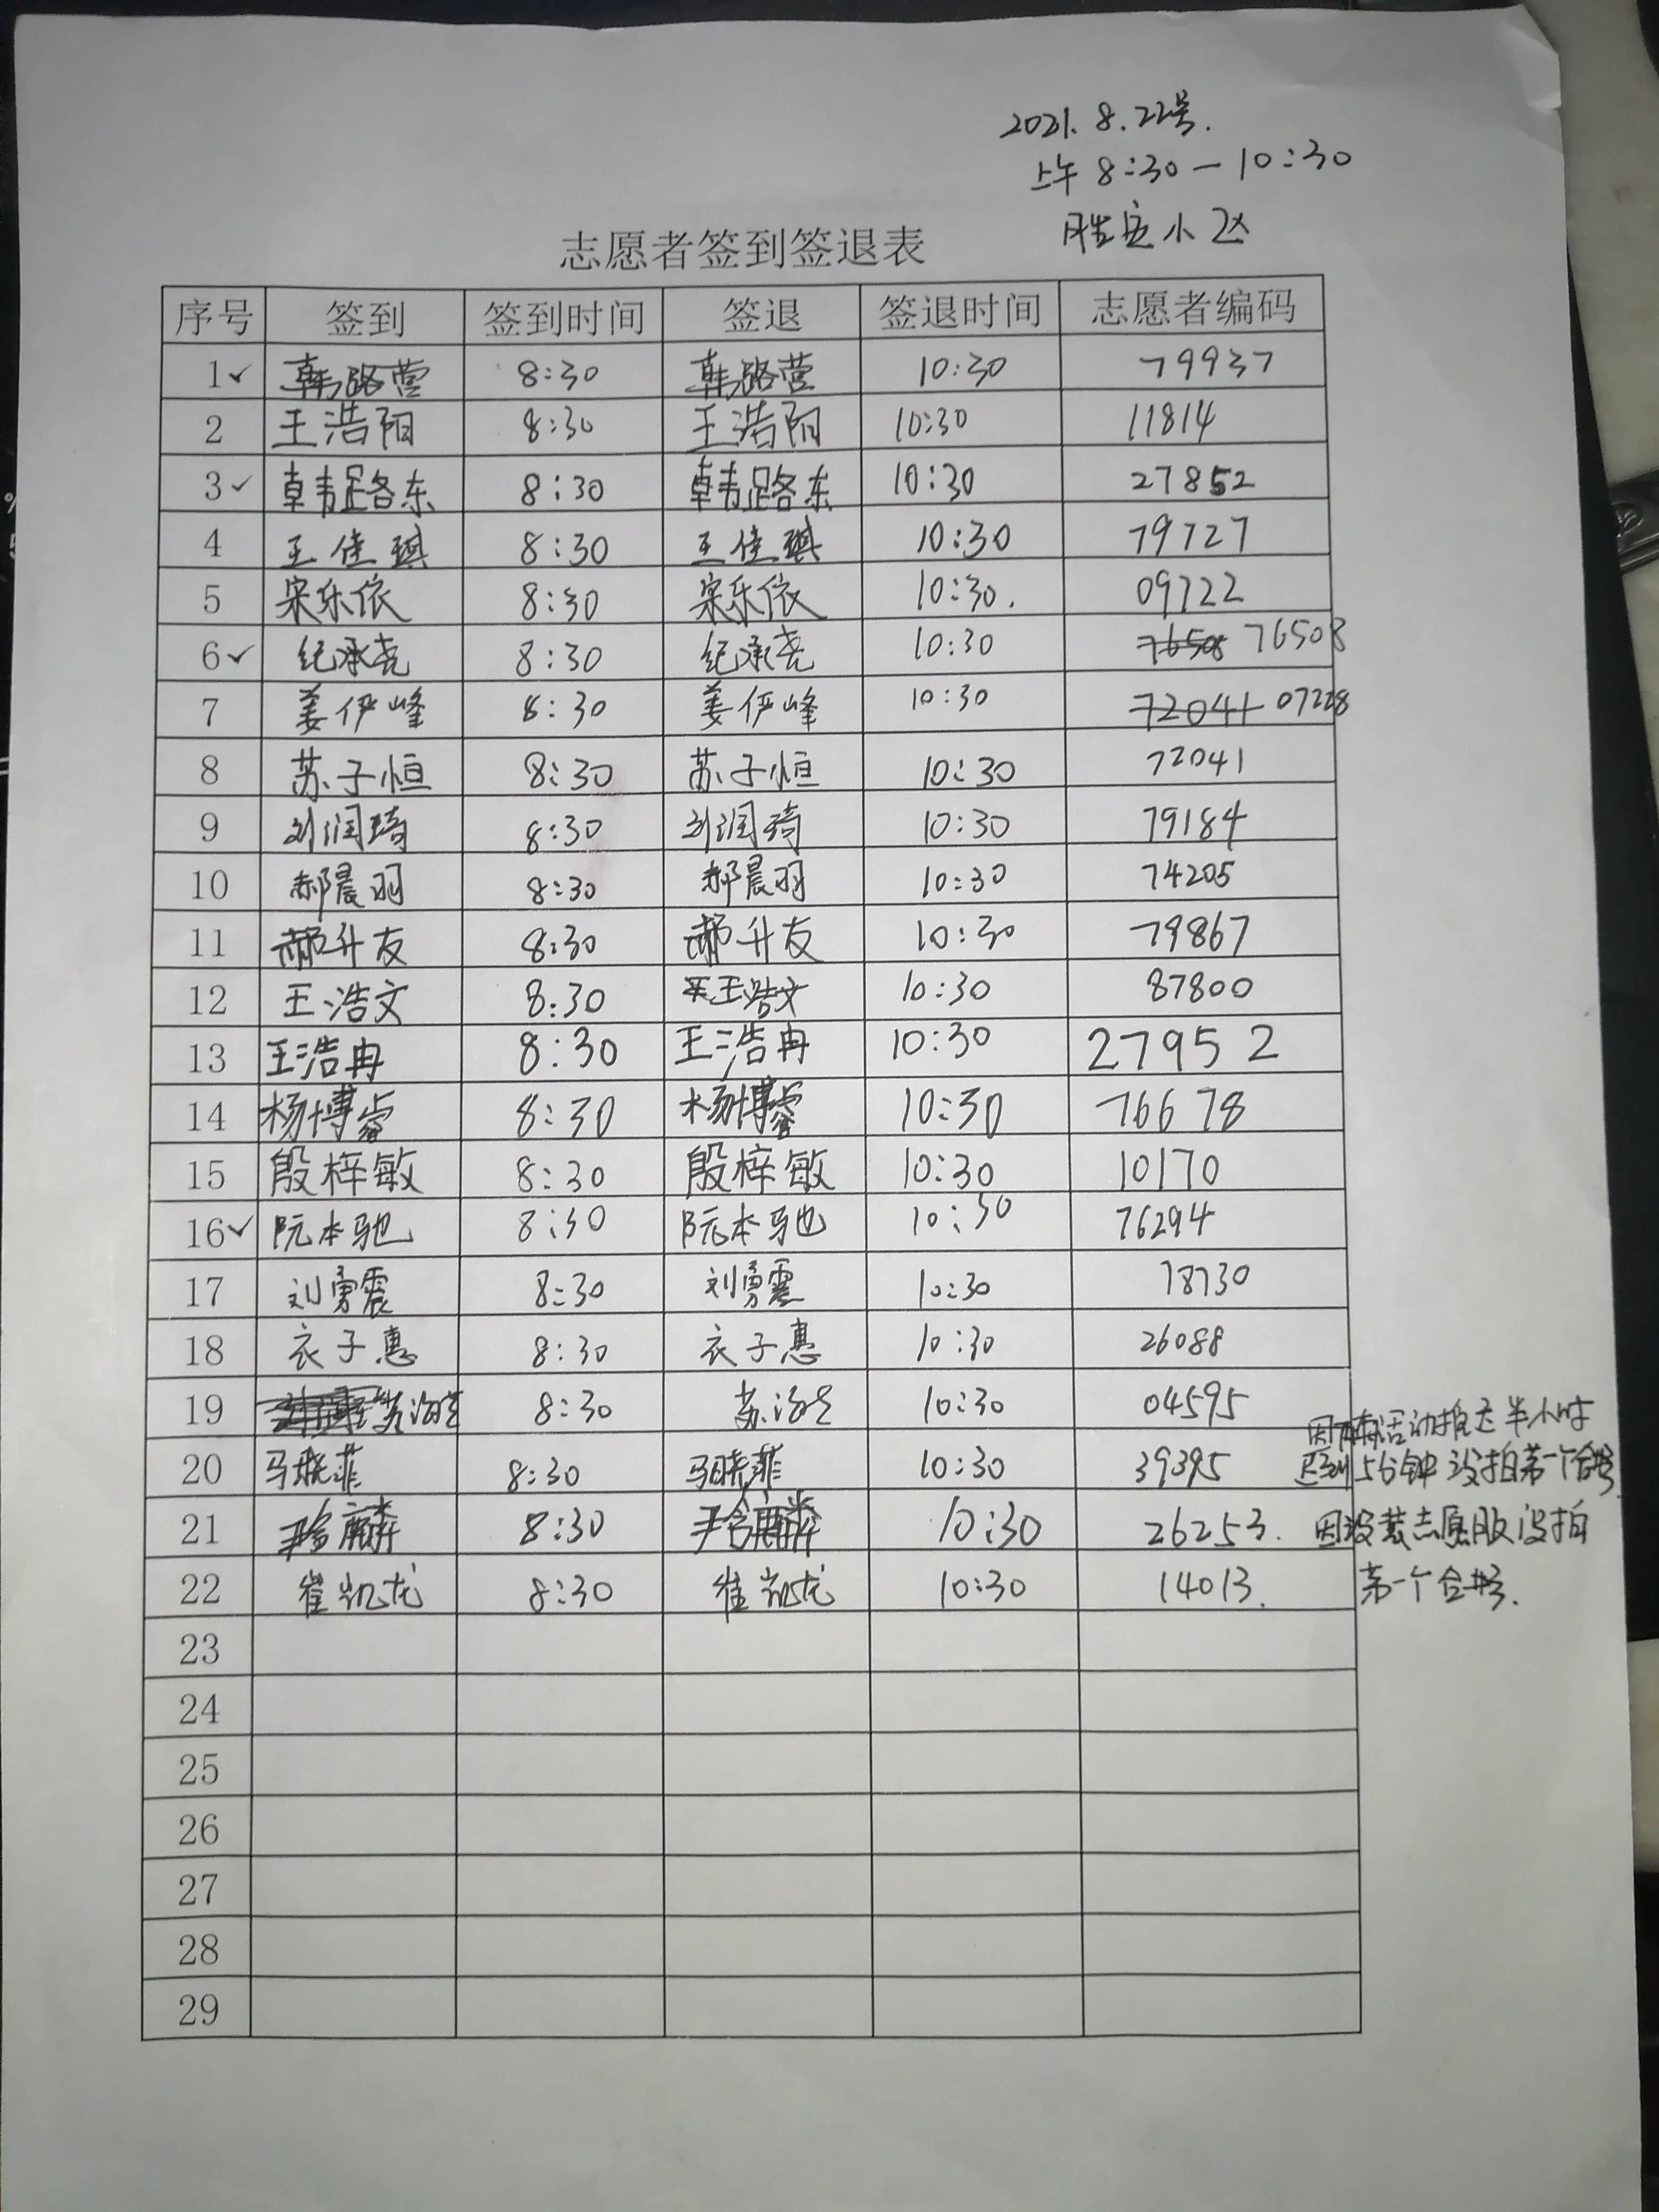 2021. 8. 22号.
上午 8:30 — 10:30
胜宏小区
志愿者签到签退表
序号 签到 签到时间 签退 签退时间 志愿者编码
1✓ 韩璐营 8:30 韩璐营 10:30 79937
2 王浩阳 8:30 王浩阳 10:30 11814
3✓ 韩路东 8:30 韩路东 10:30 27852
4 王佳琪 8:30 王佳琪 10:30 79727
5 宋乐依 8:30 宋乐依 10:30. 09722
6✓ 纪承尧 8:30 纪承尧 10:30 76508 76508
7 姜伊峰 8:30 姜伊峰 10:30 72041 07228
8 苏子恒 8:30 苏子恒 10:30 72041
9 刘润琦 8:30 刘润琦 10:30 79184
10 郝晨羽 8:30 郝晨羽 10:30 74205
11 郝升友 8:30 郝升友 10:30 79867
12 王浩文 8:30 王浩文 10:30 87800
13 王浩冉 8:30 王浩冉 10:30 27952
14 杨博睿 8:30 杨博睿 10:30 76678
15 殷梓敏 8:30 殷梓敏 10:30 10170
16✓ 阮本驰 8:30 阮本驰 10:30 76294
17 刘勇震 8:30 刘勇震 10:30 78730
18 衣子惠 8:30 衣子惠 10:30 26088
19 8:30 苏 10:30 04595
因 活动推迟半小时
20 马晓菲 8:30 马晓菲 10:30 39395
迟到5分钟没拍第一个合影
21 8:30 10:30 26253.
因没装志愿服没拍
22 崔凯龙 8:30 崔凯龙 10:30 14013.
第一个合影.
23
24
25
26
27
28
29